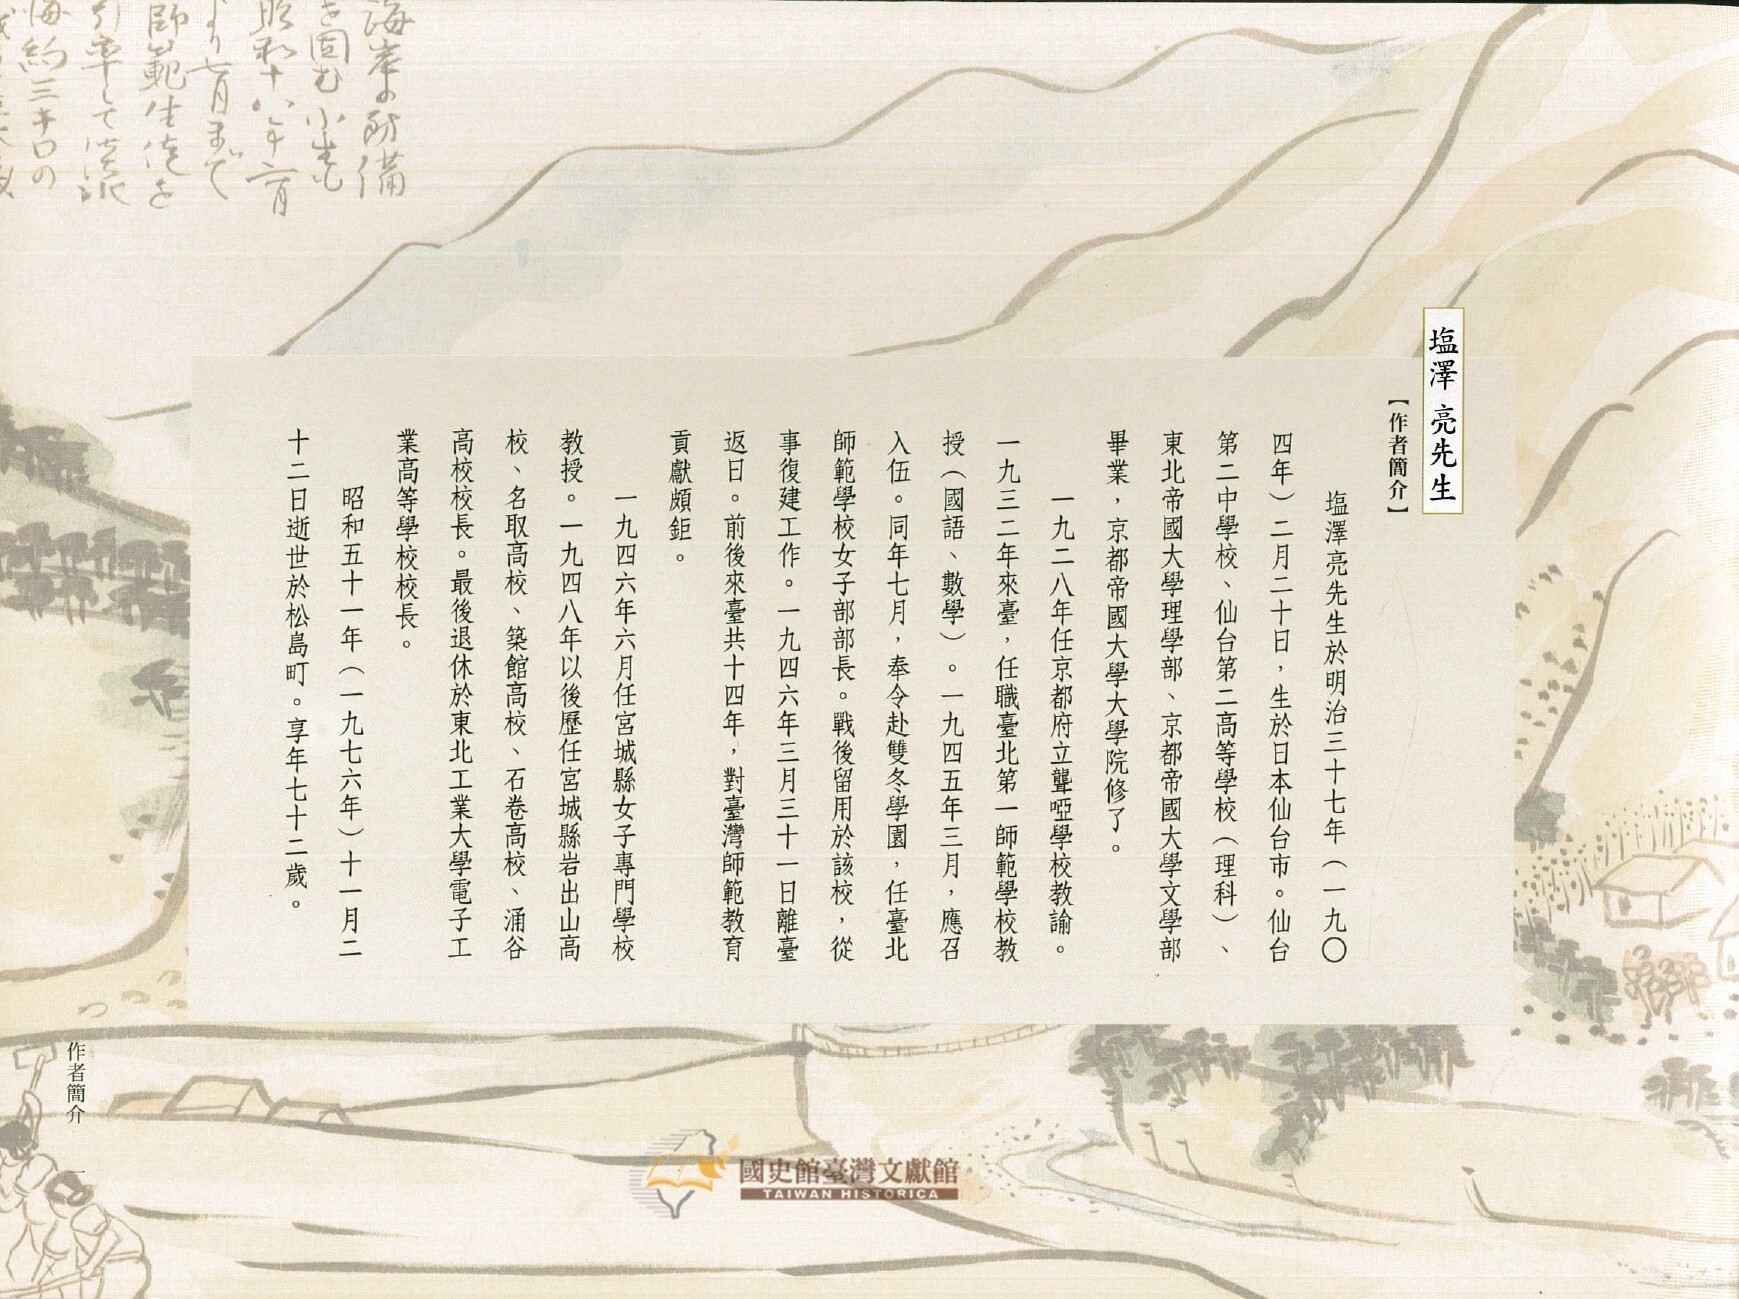 塩澤 亮先生
【作者簡介】
塩澤亮先生於明治三十七年（一九〇
四年）二月二十日，生於日本仙台市。仙台
第二中學校、仙台第二高等學校（理科）、
東北帝國大學理學部、京都帝國大學文學部
畢業，京都帝國大學大學院修了。
一九二八年任京都府立聾啞學校教諭。
一九三二年來臺，任職臺北第一師範學校教
授（國語、數學）。一九四五年三月，應召
入伍。同年七月，奉令赴雙冬學園，任臺北
師範學校女子部部長。戰後留用於該校，從
事復建工作。一九四六年三月三十一日離臺
返日。前後來臺共十四年，對臺灣師範教育
貢獻頗鉅。
一九四六年六月任宮城縣女子專門學校
教授。一九四八年以後歷任宮城縣岩出山高
校、名取高校、築館高校、石卷高校、涌谷
高校校長。最後退休於東北工業大學電子工
業高等學校校長。
昭和五十一年（一九七六年）十一月二
十二日逝世於松島町。享年七十二歲。
海岸の防備
を固む
昭和十八年二月
より七月まで
師範生徒を
引率して淡水
海約三キロの
作者簡介
一
國史館臺灣文獻館
TAIWAN HISTORICA